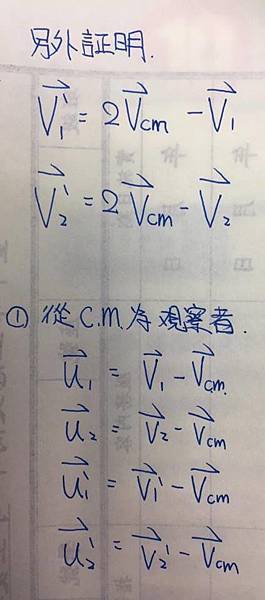 另外証明.
$\vec{V_1'} = 2\vec{V}_{cm} - \vec{V_1}$
$\vec{V_2'} = 2\vec{V}_{cm} - \vec{V_2}$
① 從 C.M. 為觀察者.
$\vec{u}_1 = \vec{V}_1 - \vec{V}_{cm}$
$\vec{u}_2 = \vec{V}_2 - \vec{V}_{cm}$
$\vec{u}_1' = \vec{V}_1' - \vec{V}_{cm}$
$\vec{u}_2' = \vec{V}_2' - \vec{V}_{cm}$